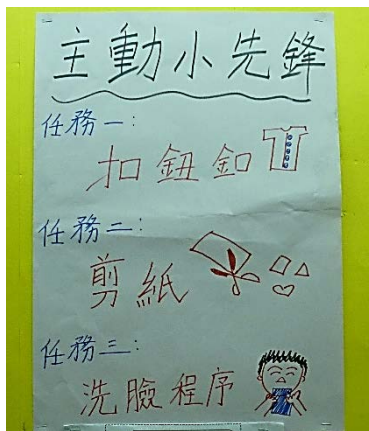 主動小先鋒
任務一:
扣鈕釦
任務二:
剪紙
任務三:
洗臉程序